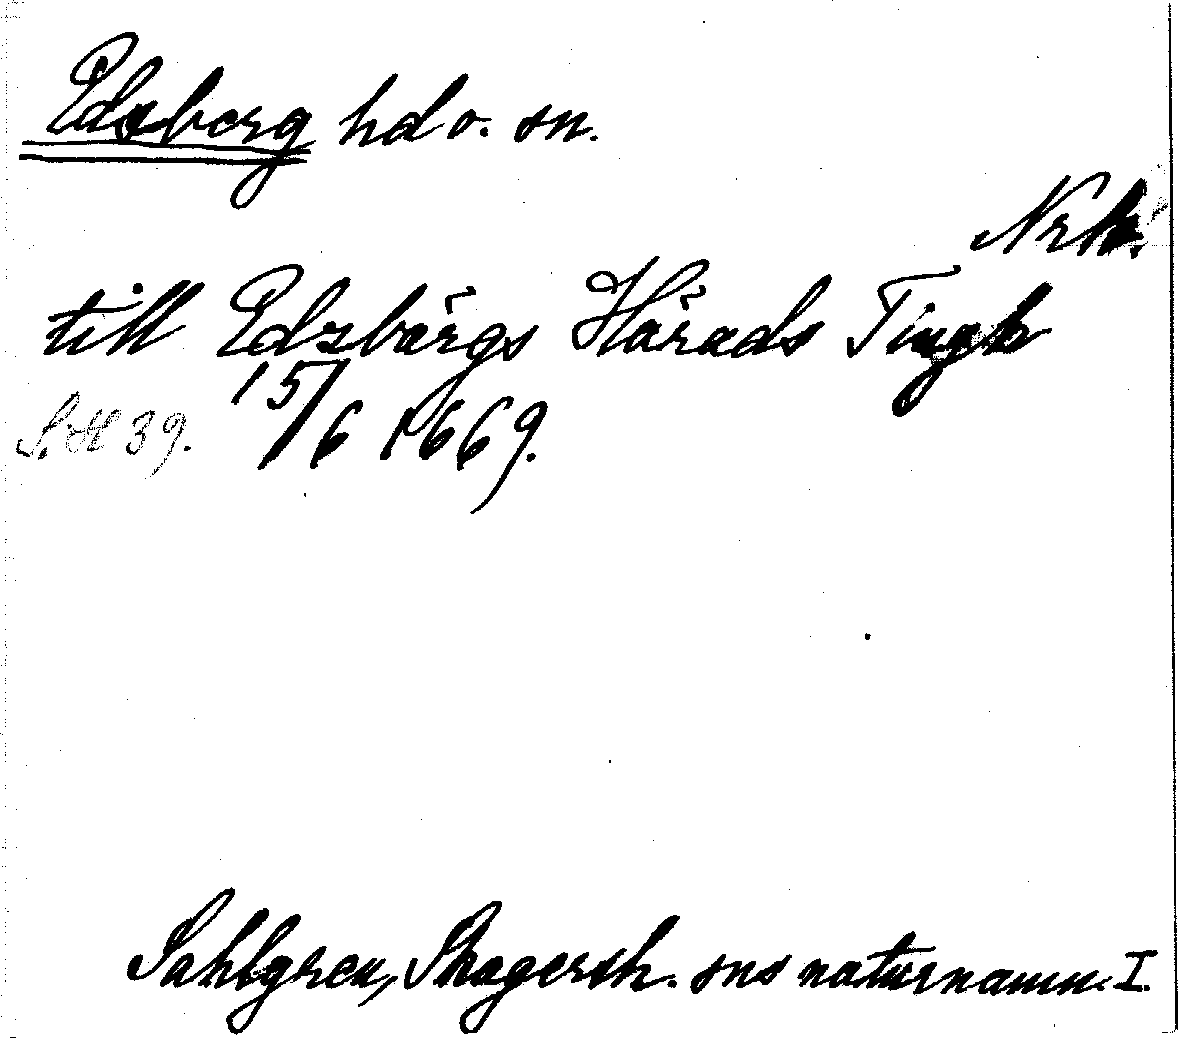 Edsberg hd o. sn.
Nrk.
till Edzbärgs Härads Tingh
15/6 1669.
S. 39.
Sahlgren, Skagersh. sns naturnamn. I.